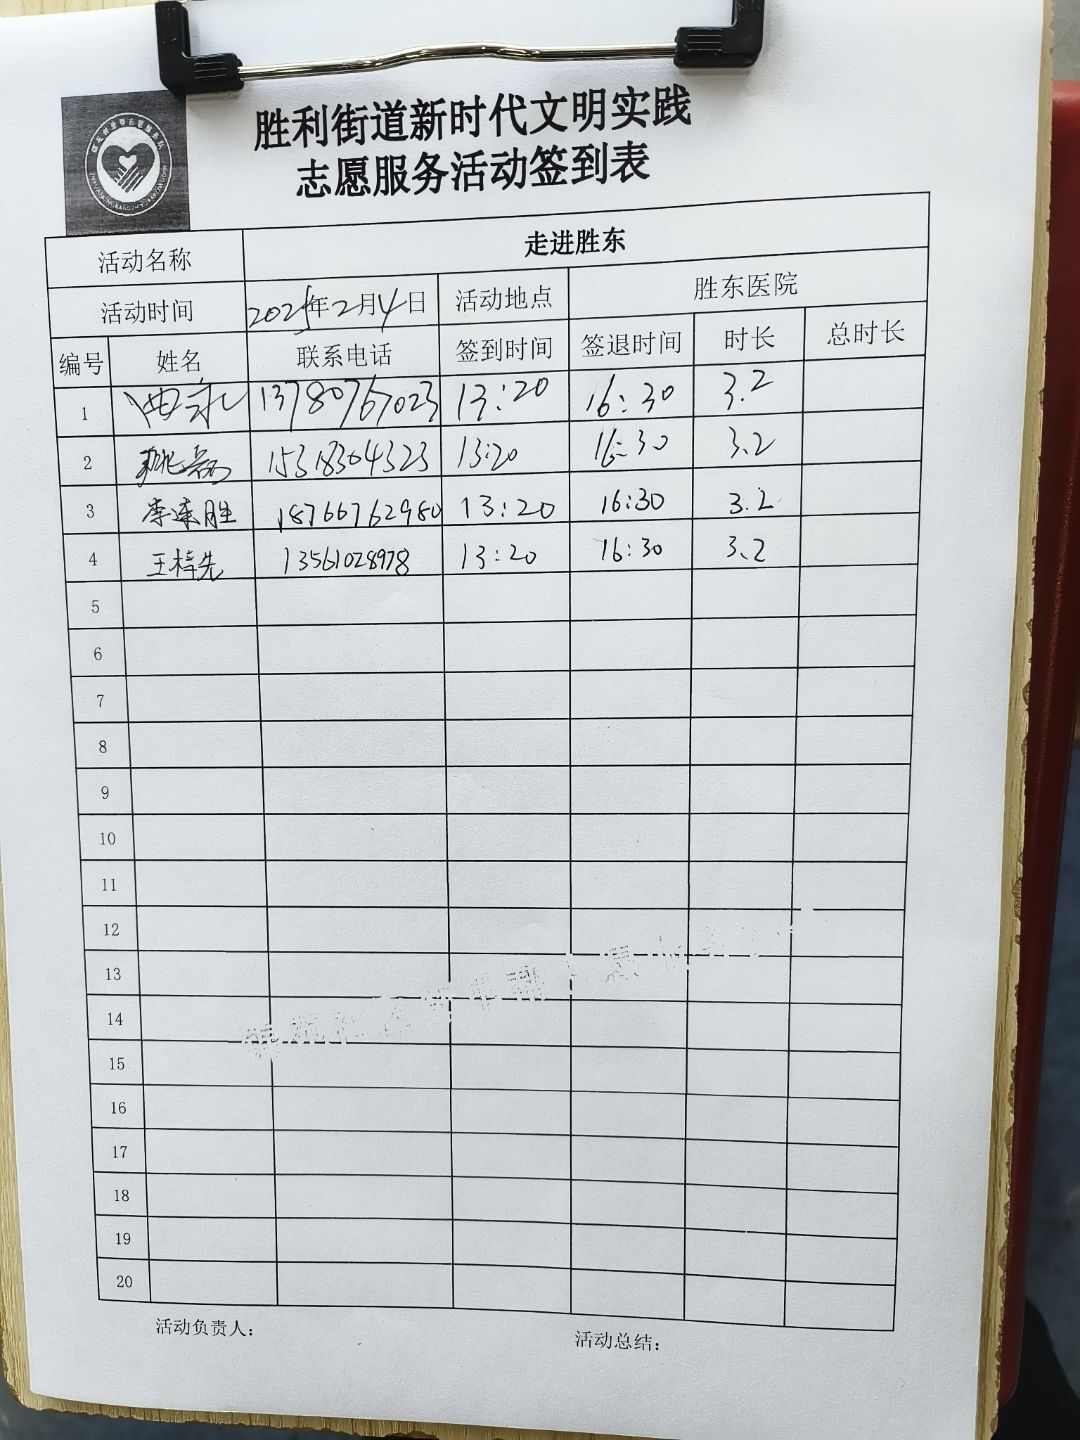 胜利街道新时代文明实践
志愿服务活动签到表
活动名称 走进胜东
活动时间 2025年2月4日 活动地点 胜东医院
编号 姓名 联系电话 签到时间 签退时间 时长 总时长
1 13780767023 13:20 16:30 3.2
2 15318304323 13:20 16:30 3.2
3 李连胜 18766762980 13:20 16:30 3.2
4 王梓先 13561028978 13:20 16:30 3.2
5
6
7
8
9
10
11
12
13
14
15
16
17
18
19
20
活动负责人: 活动总结: